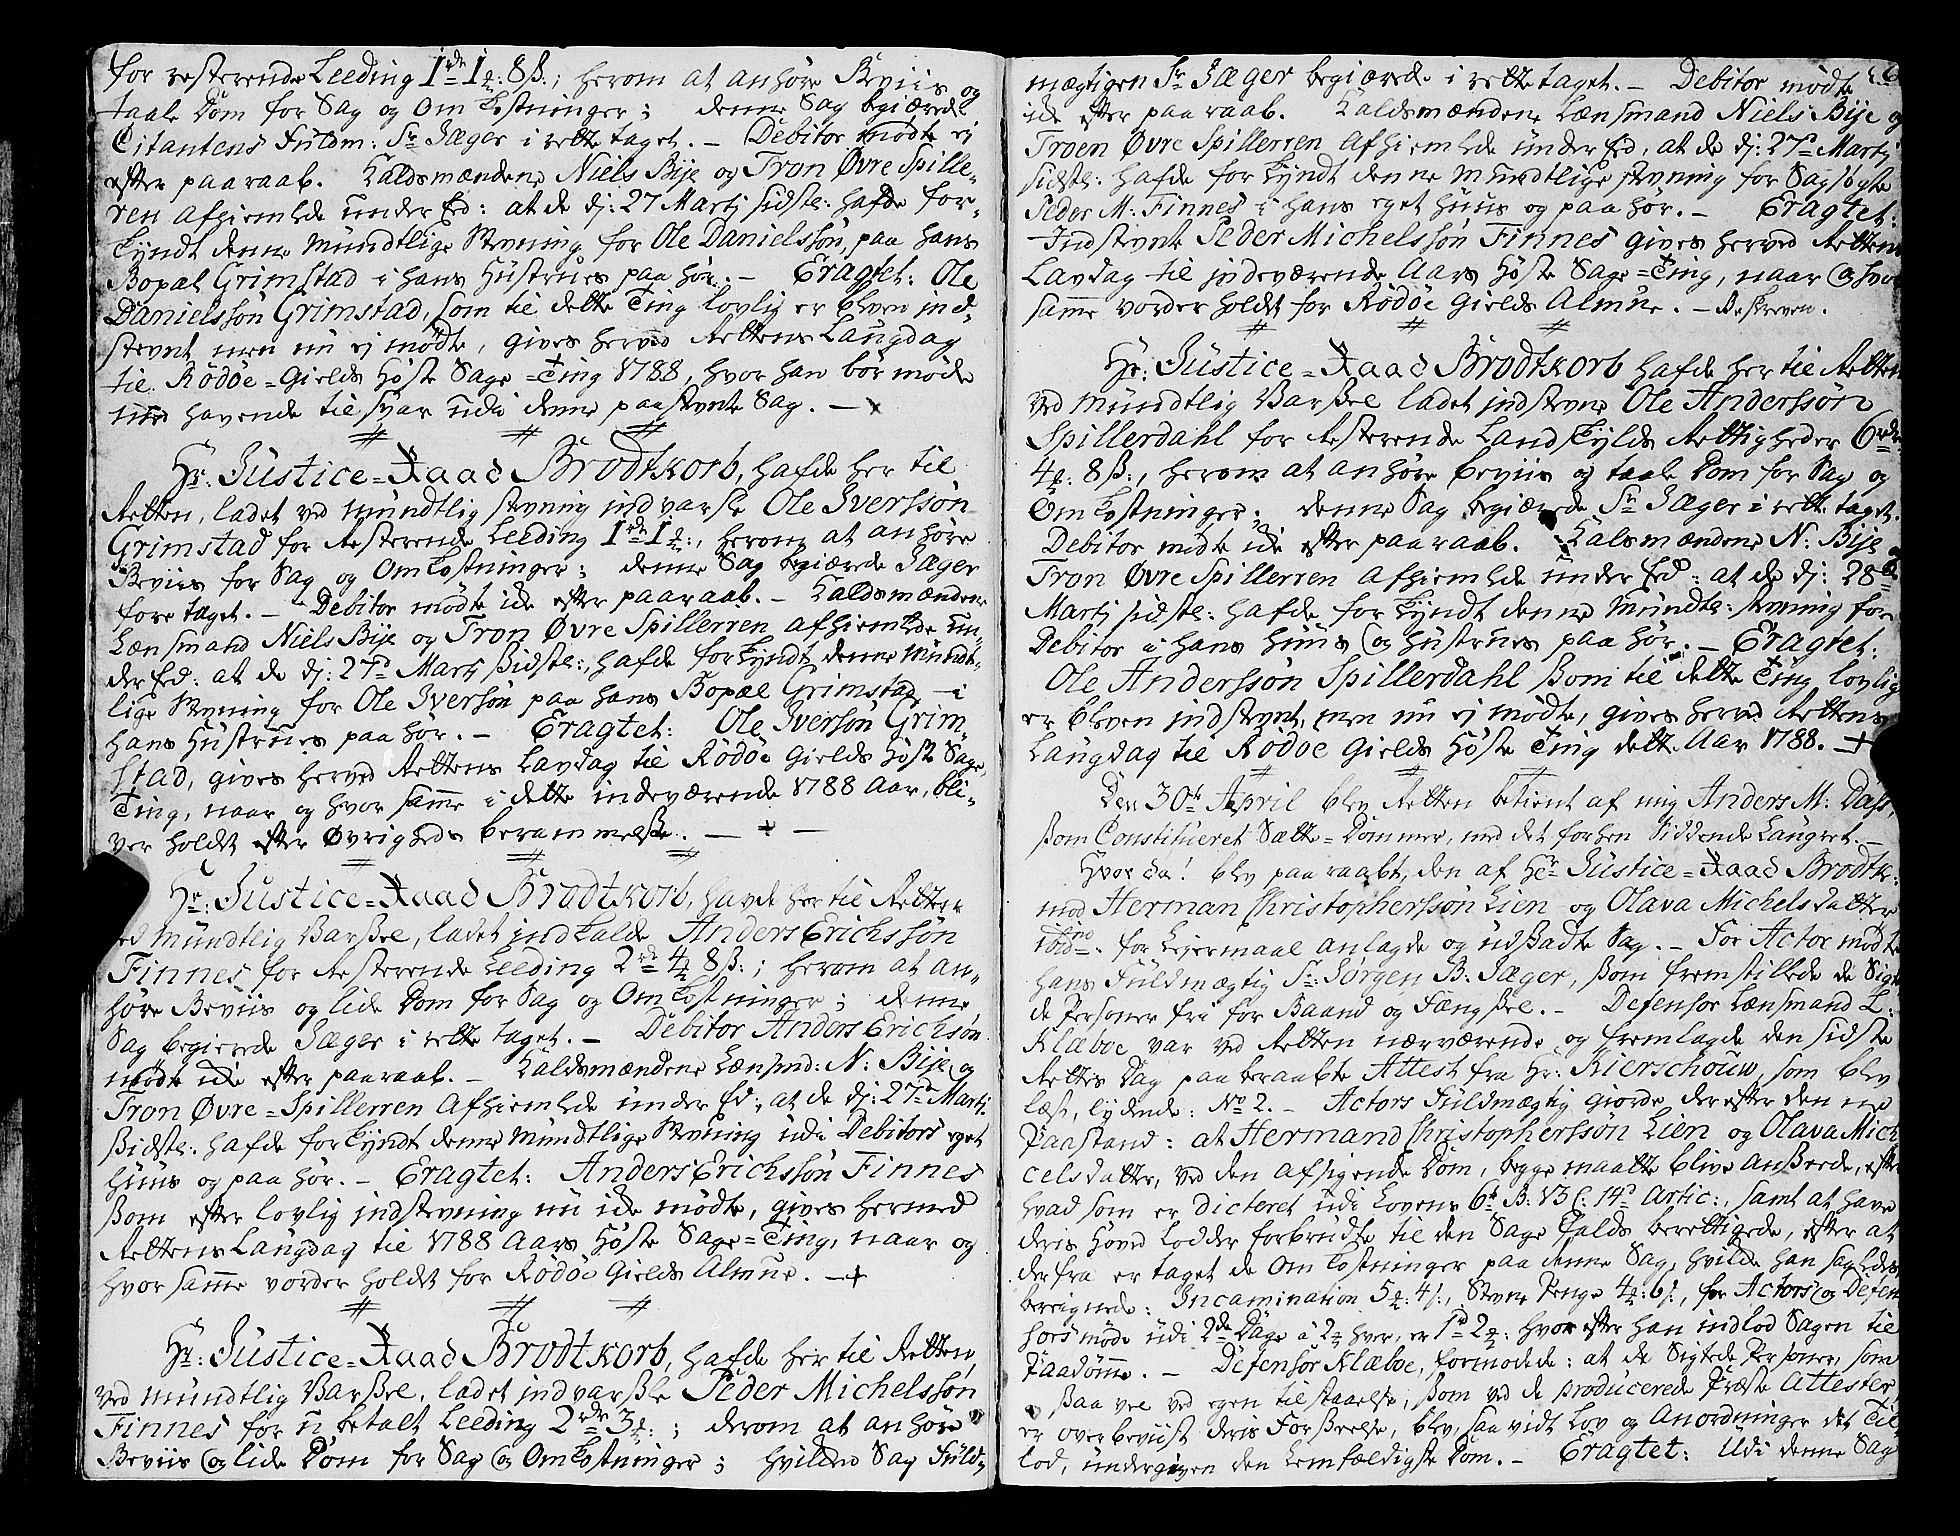 for resterende Leeding 1 rd 1 ort: 8 ß.; herom at anhøre Beviis og
taale Dom for Sag og Omkostninger; denne Sag begiærede
Citantens Fuldm: Sr Jæger i rette taget. – Debitor mødte ej
efter paaraab. Kaldsmændene Niels Bije og Tron Øvre Spille-
ren afhiemlede under Ed: at de dj: 27 Martj sidstl: hafde for-
kyndt denne mundtlige Stevning for Ole Danielssøn, paa hans
Bopæl Grimstad i hans Hustrues paahør. – Eragtet: Ole
Danielssøn Grimstad, som til dette Ting lovlig er bleven ind-
stevnt men nu ej mødte, gives herved Rettens Laugdag
til Rødøe-Gields Høste Sage-Ting 1788, hvor han bør møde
med havende til svar udi denne paastevnte Sag. –
Hr: Justice-Raad Brodtkorb, hafde her til
Retten, ladet ved mundtlig stevning indvarsle Ole Iverssøn
Grimstad for Resterende Leeding 1 rd 1 ort:, herom at anhøre
Beviis for Sag og Omkostninger; denne Sag begiærede Jæger
foretaget. – Debitor mødte ick efter paaraab. – Kaldsmændene
Lænsmand Niels Bije og Tron Øvre Spillerren afhiemlede un-
der Ed: at de dj: 27d Martj sidstl:, hafde forkyndt denne mundt-
lige Stevning for Ole Iversøn paa hans Bopæl Grimstad i
hans Hustrues paahør. – Eragtet: Ole Iversøn Grim-
stad, gives herved Rettens Lavdag til Rødøe Gields Høst Sage
Ting, naar og hvor samme i dette indeværende 1788 Aar, bli-
ver holdt efter Øvrigheds berammelse. –
Hr: Justice-Raad Brodtkorb, havde her til Retten
ved mundtlig Varsel, ladet indkalde Anders Erichssøn
Finnes for Resterende Leeding 2 rd 4 ort 8 ß.; herom at an-
høre Beviis og lide Dom for Sag og Omkostninger; denne
Sag begierede Jæger i rette taget. – Debitor Anders Erichsøn
mødte icke efter paaraab. – Kaldsmændene Lænsmd: N: Bije og
Tron Øvre-Spillerren afhiemlede under Ed; at de dj: 27d Martj
sidstl: hafde forkyndt denne Mundtlige Stevning udi Debitors eget
Huus og paahør. – Eragtet: Anders Erichssøn Finnes
som efter lovlig indstevning nu icke mødte, gives hermed
Rettens Laugdag til 1788 Aars Høste Sage-Ting, naar og
hvor samme vorder holdt for Rødøe Gields Almue. –
Hr: Justice-Raad Brodtkorb, hafde her til Retten,
ved mundtlig Varsel, ladet indvarsle Peder Michelssøn
Finnes for ubetalt Leeding 2 rdr 3 ort:; derom at anhøre
Beviis og lide Dom for Sag og Omkostninger; hvilcken Sag Fuld-
mægtigen Sr Jæger begiærede i rette taget. – Debitor mødte
icke efter paaraab. Kaldsmændene Lænsmand Niels Bije og
Troen Øvre Spillerren afhiemlede under Ed, at de dj: 27d Martj
sidstl: hafde forkyndt denne mundtlige stevning for Sagsøgte
Peder M: Finnes i hans eget Huus og paahør. – Eragtet:
Indstevnte Peder Michelssøn Finnes gives herved Rettens
Lavdag til indeværende Aars Høste Sage-Ting, naar og hvor
samme vorder holdt for Rødøe Gields Almue. – Beskreven.
Hr: Justice-Raad Brodtkorb hafde her til Retten
ved mundtlig Varsel ladet indstevne Ole Anderssøn
Spillerdahl for Resterende Landskylds Rettigheder 6 rdr
4 ort: 8 ß:, herom at anhøre beviis og taale Dom for Sag og
Omkostninger; denne Sag begiærede Sr Jæger i rette taget.
Debitor mødte icke efter paaraab. Kalsmændene N: Bije og
Tron Øvre Spillerren afhiemlede under Ed: at de dj: 28de
Martj sidstl: hafde forkyndt denne Mundtl: stevning for
Debitor i hans Huus og hustrues paahør. – Eragtet:
Ole Anderssøn Spillerdahl som til dette Ting lovlig
er bleven indstevnt, men nu ej mødte, gives herved Rettens
Langdag til Rødøe Gields Høste Ting dette Aar 1788. –
Den 30te April blev Retten betient af mig Anders M: Dass,
som Constitueret Sætte-Dommer, med det forhen siddende Laugret. –
Hvor da! blev paaraabt, den af Hr Justice-Raad Brodtk:
mod Herman Christopherssøn Lien og Olava Michelsdatter
for Leiermaal anlagde og udsadte Sag. – For Actor mødte
hans Fuldmægtig Sr Jørgen B: Jæger, som fremstillede de Sigte-
de Personer fri for Baand og Fængsel. – Defensor Lænsmand L:
Klæboe var ved Retten nærværende og fremlagde den sidste
Rettes Dag paaberaabte Attest fra Hr: Kierschouw, som blev
læst, lydende: No 2. – Actors Fuldmægtig giorde derefter den
Paastand: at Hermand Christopherssøn Lien og Olava Mich
celsdatter, ved den afsigende Dom, begge maatte blive ansete, efter
hvad som er dicteret udi Lovens 6te B: 13 C: 14d Artic:, samt at have
deris Hoved lodder forbrudte til den Sage Falds berettigede, efter at
derfra er taget de Omkostninger paa denne Sag, hvilcke han saaledes
beregnede: Incamination 5 ort: 4 ß., Stevne Penge 4 ort: 6 ß., for Actors og Defen
sors møde udi 2de Dage à 2 ort hver, er 1 rd 2 ort: hvorefter han indlod Sagen til
Paadømme. – Defensor Klæboe, formodede: at de Sigtede Personer, som
saa vel ved egen tilstaaelse, som ved de producerede Præste Attester
er overbeviist deris Forseelse, blev, saavidt Lov og Anordninger det til
lod, undergiven den lemfældigste Dom. – Eragtet: Udi denne Sag